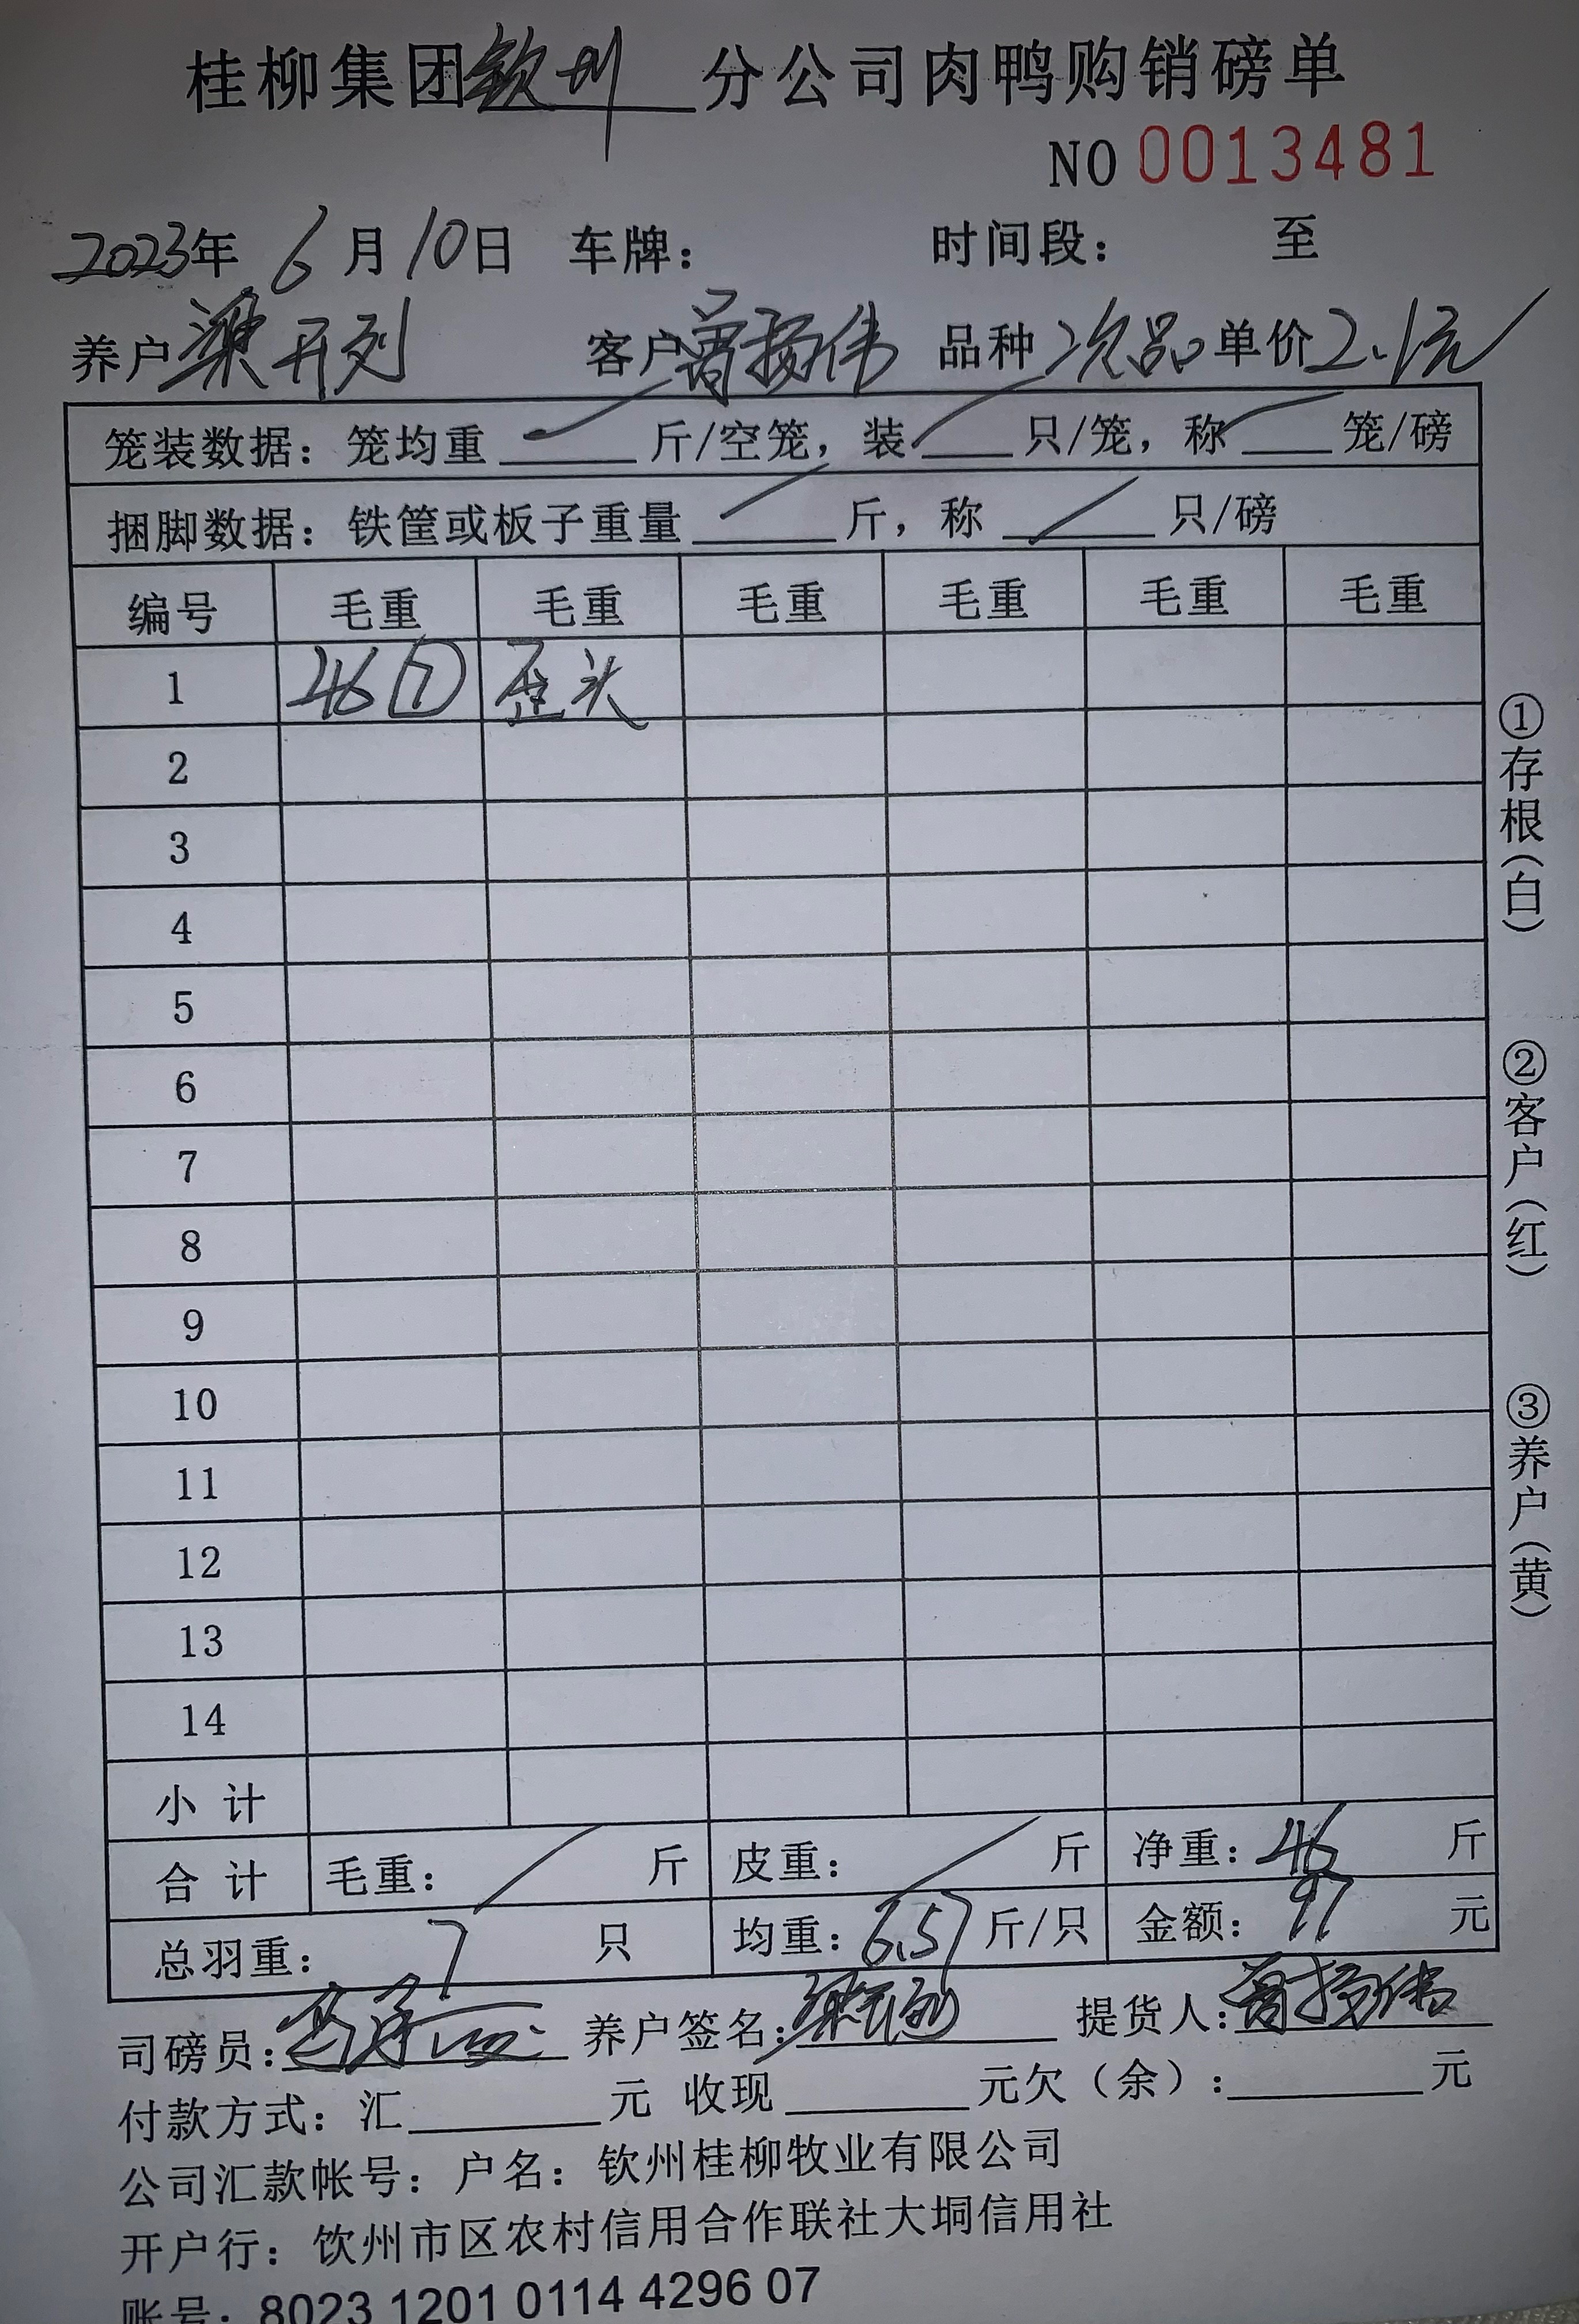 桂柳集团钦州分公司肉鸭购销磅单
NO 0013481
2023年 6月10日 车牌： 时间段： 至
养户梁开列 客户曾扬伟 品种次品 单价2.1元
笼装数据：笼均重____斤/空笼，装____只/笼，称____笼/磅
捆脚数据：铁筐或板子重量____斤，称____只/磅
编号 毛重 毛重 毛重 毛重 毛重 毛重
1 46⑦ 歪头
2
3
4
5
6
7
8
9
10
11
12
13
14
小计
合计 毛重： 斤 皮重： 斤 净重：46 斤
总羽重：7 只 均重：6.57 斤/只 金额：97 元
司磅员： 养户签名： 提货人：曾扬伟
付款方式：汇____元 收现____元欠（余）:____元
公司汇款帐号：户名：钦州桂柳牧业有限公司
开户行：钦州市区农村信用合作联社大垌信用社
账号：8023 1201 0114 4296 07
①存根（白）
②客户（红）
③养户（黄）